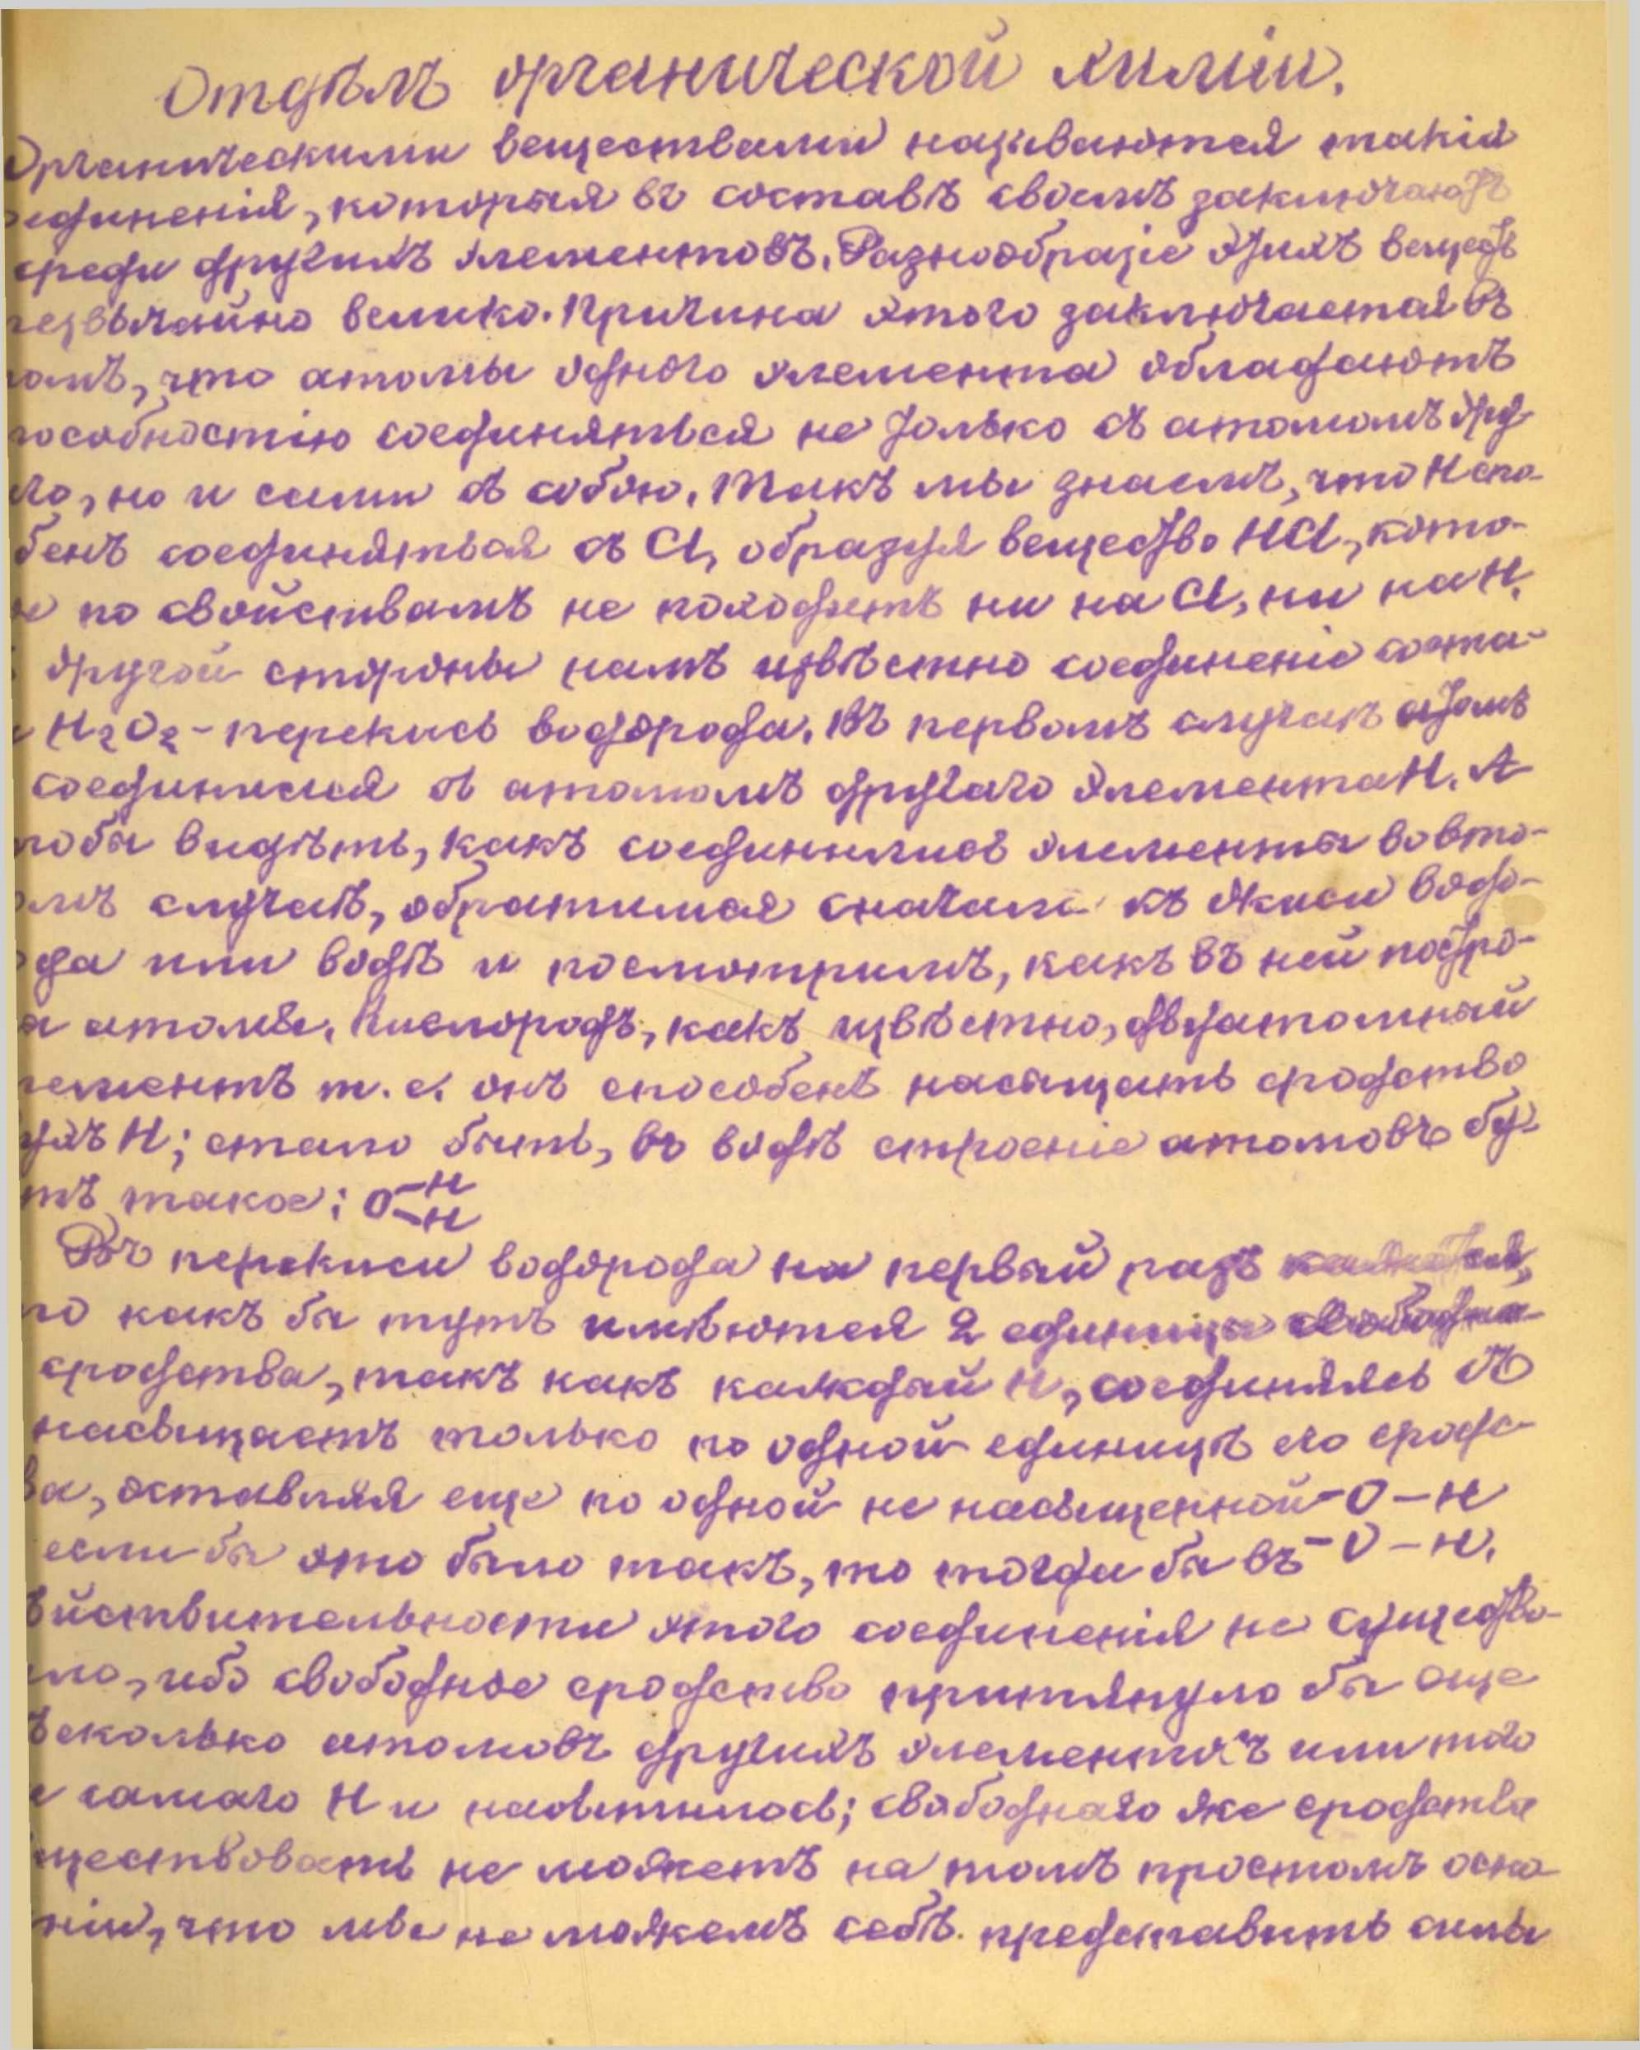 Отдѣлъ органической химіи.
Органическими веществами называются такія
единенія, которыя въ составѣ своемъ заключаютъ
среди другихъ элементовъ. Разнообразіе этихъ веществъ
резвычайно велико. Причина этого заключается въ
омъ, что атомы одного элемента обладаютъ
пособностію соединяться не только съ атомомъ дру
го, но и сами съ собою. Такъ мы знаемъ, что H спо-
бенъ соединяться съ Cl, образуя вещество HCl, кото-
е по свойствамъ не походитъ ни на Cl, ни на H.
другой стороны намъ извѣстно соединеніе соста-
H2O2 - перекись водорода. Въ первомъ случаѣ атомъ
соединился съ атомомъ другаго элемента H. А
тобы видѣть, какъ соединились элементы во вто-
омъ случаѣ, обратимся сначала къ окиси водо-
ода или водѣ и посмотримъ, какъ въ ней постро-
ы атомы. Кислородъ, какъ извѣстно, двуатомный
лементъ т. е. онъ способенъ насыщать сродство
ухъ H; стало быть, въ водѣ строеніе атомовъ бу-
тъ такое: O-H
-H
Въ перекиси водорода на первый разъ кажется,
то какъ бы тутъ имѣются 2 единицы свободна-
сродства, такъ какъ каждый H, соединяясь съ О
насыщаетъ только по одной единицѣ его сродс-
ва, оставляя еще по одной не насыщенной -O-H
если бы это было такъ, то тогда бы въ -O-H.
ѣйствительности этого соединенія не существо-
ало, ибо свободное сродство притянуло бы еще
ѣсколько атомовъ другихъ элементовъ или того
е самаго H и насытилось; свободнаго же сродства
уществовать не можетъ на томъ простомъ осно
ніи, что мы не можемъ себѣ представить силы